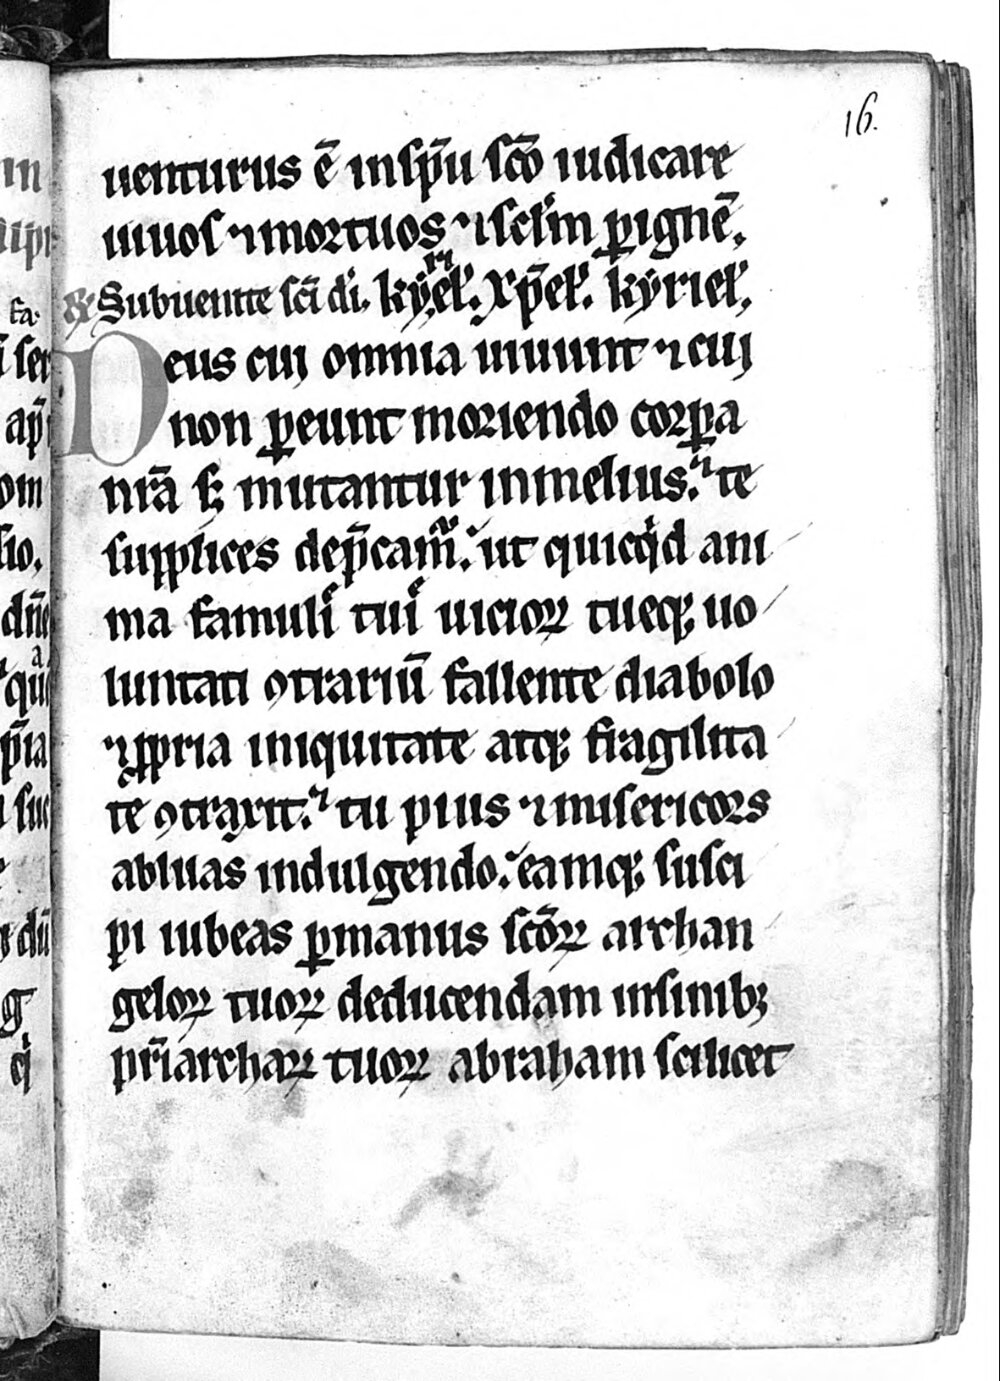 16.
uenturus ē in sp̄u sc̄o iudicare
uiuos ⁊ mortuos ⁊ sclm̄ ꝑ ignē.
℟ Subuenite sc̄i di. kyriel̕. xp̄el̕. kyriel̕.
Deus cui omnia uiuunt ⁊ cui
non ꝑeunt moriendo corꝑa
nr̄a sꝫ mutantur in melius. te
supplices dep̄cam̄. ut quicqͥd ani
ma famuli tui uicioꝝ tueqꝫ uo
luntati ꝯtrariū fallente diabolo
⁊ ꝓpria iniquitate atqꝫ fragilita
te ꝯtraxit. tu pius ⁊ misericors
abluas indulgendo. eamqꝫ susci
pi iubeas ꝑ manus sc̄oꝝ archan
geloꝝ tuoꝝ deducendam in sinibꝫ
pr̄iarchaꝝ tuoꝝ abraham scilicet